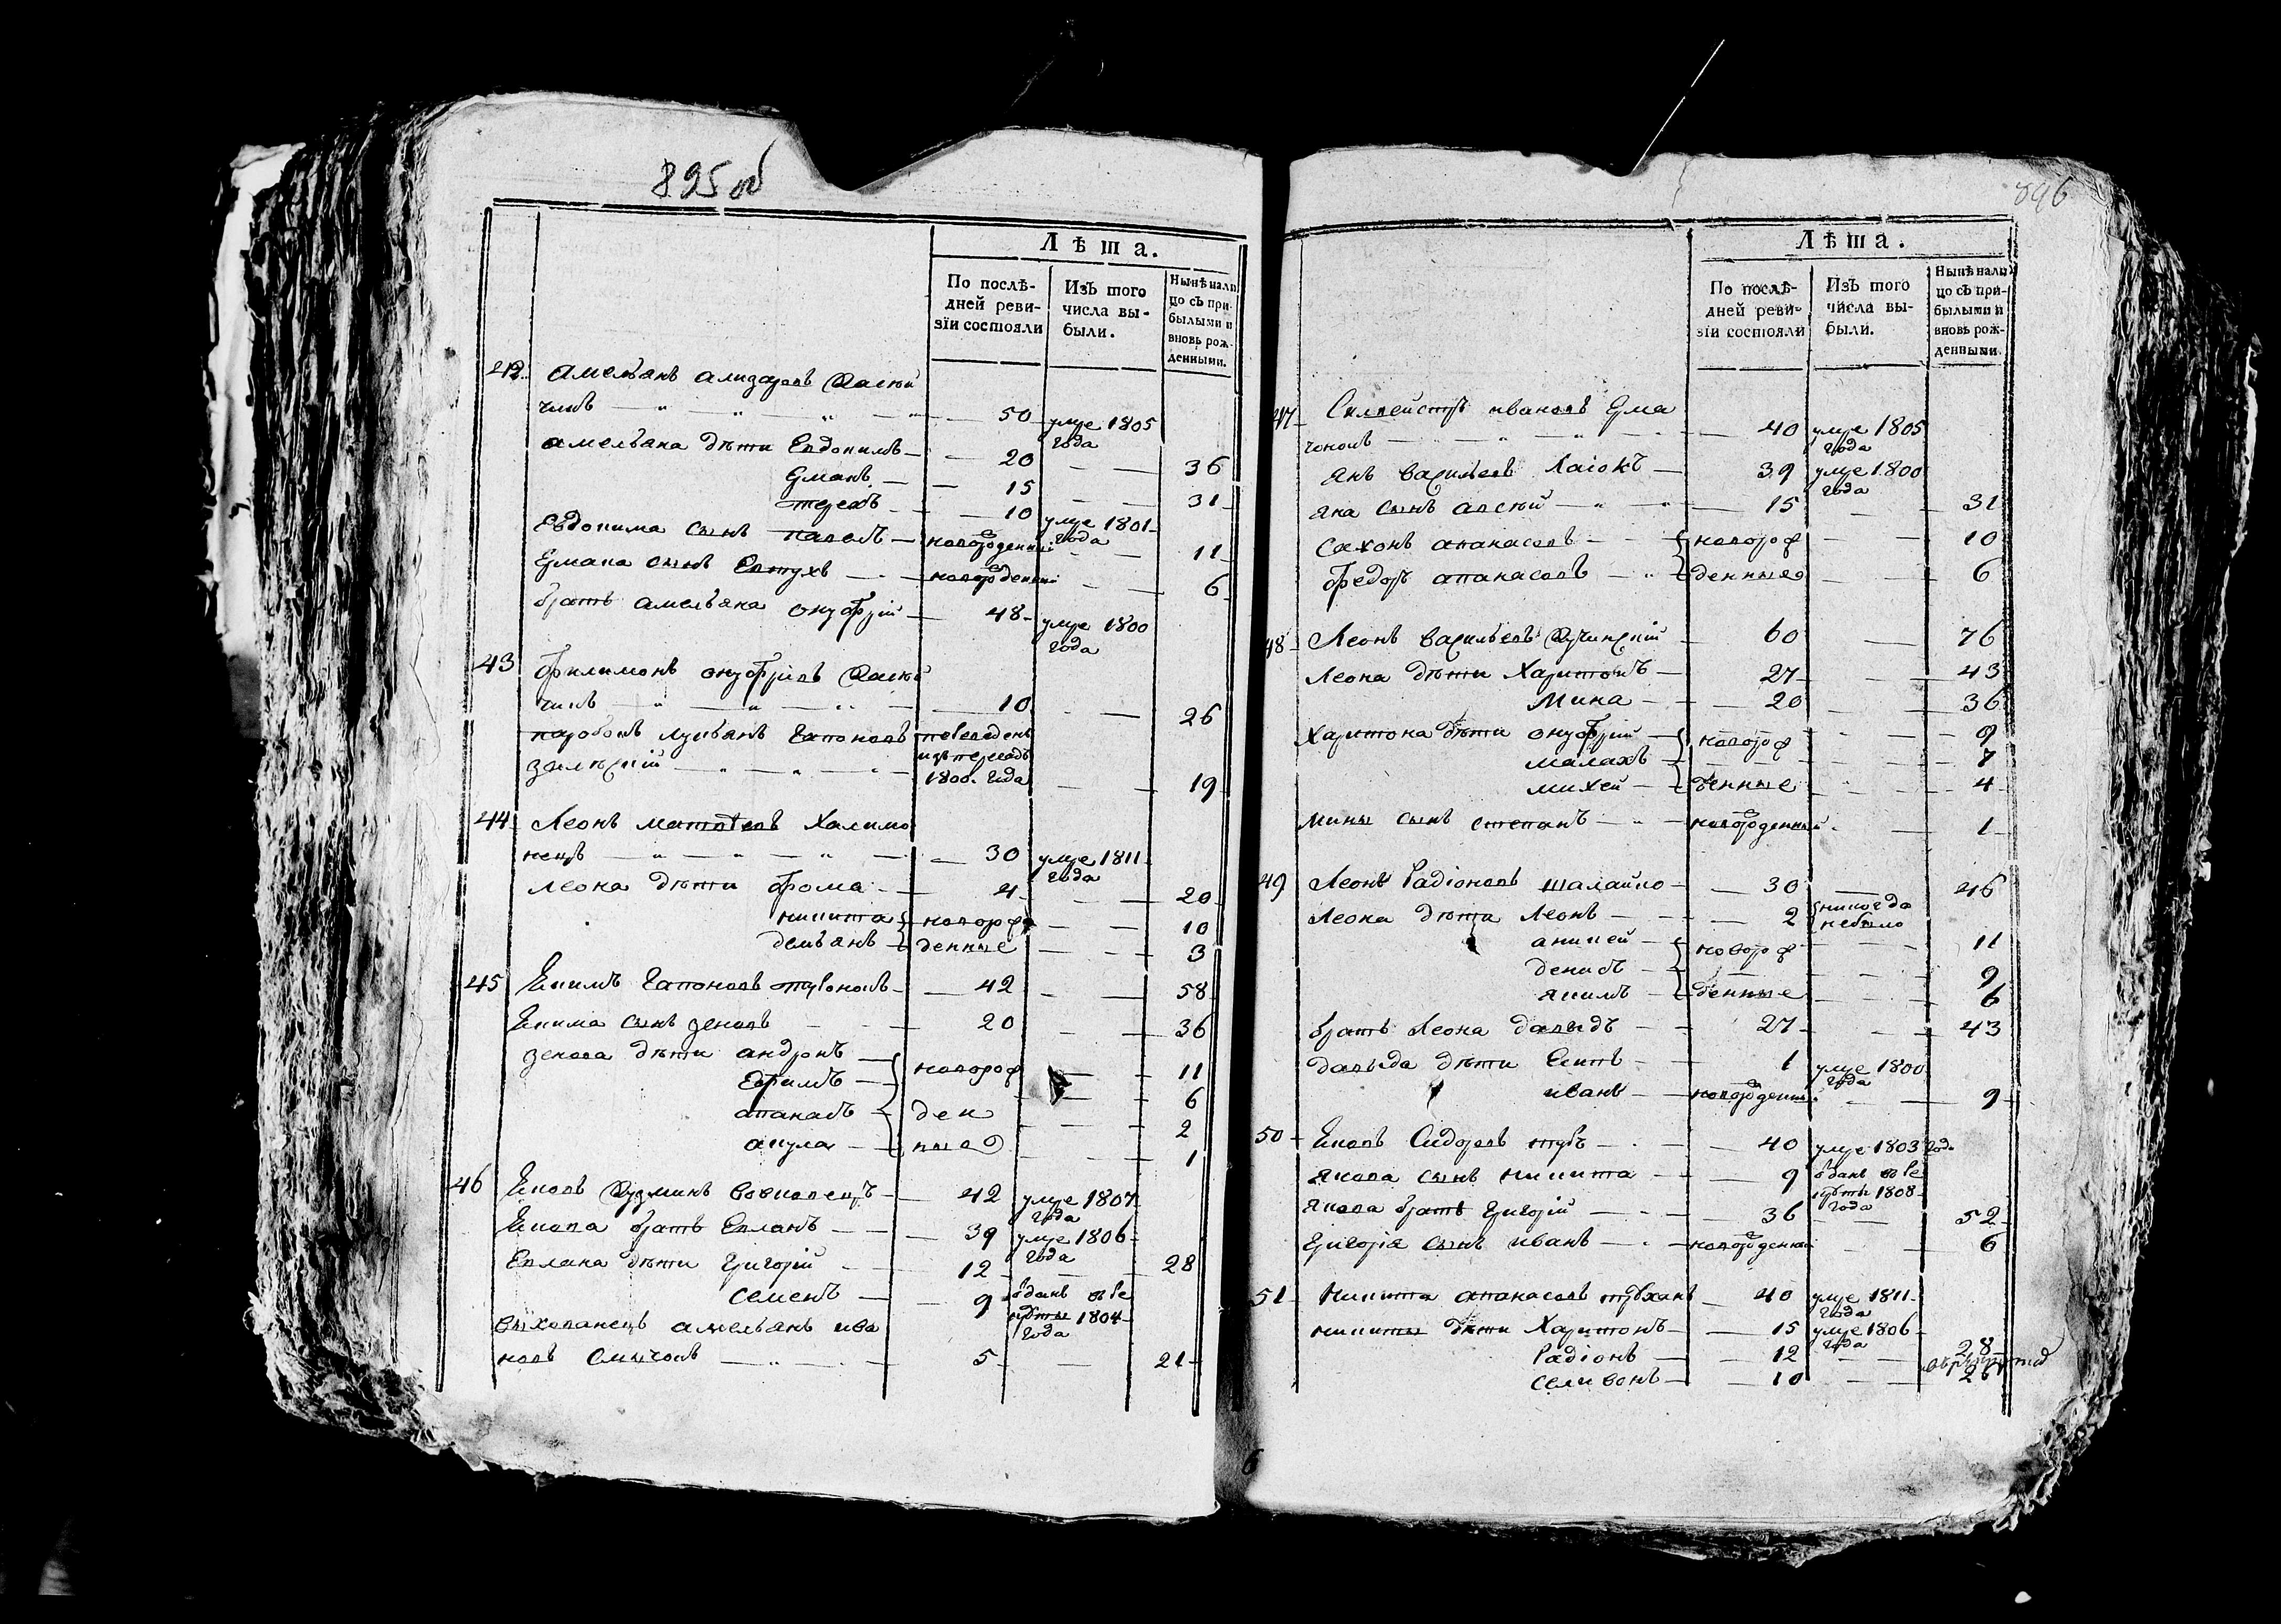 895 об
Лѣта.
По послѣдней ревизіи состояли
Изъ того числа выбыли.
Нынѣ налицо съ прибылыми и вновь рожденными.
42. Амельянъ
чикъ — 50 умре 1805 года
амельяна дѣти Евдокимъ — 20 — 36
Ермакъ — 15 — 31
терехъ — 10 умре 1801 года
Евдокима сынъ павелъ — новорожденный — 11
Ермака сынъ Евтухъ — новорожденный — 6
братъ амельяна онуфрій — 48 умре 1800 года
43 Филимонъ онуфріевъ
чикъ — 10 — 26
1800. года — 19
44 Леонъ матвѣевъ Халимо
нецъ — 30 умре 1811 года
Леона дѣти фома — 4 — 20
никита — новорож — 10
демьянъ — денные — 3
45 Екимъ Гапоновъ — 42 — 58
Екима сынъ зеновъ — 20 — 36
зенова дѣти андронъ — новорож — 11
Ефимъ — 6
апанасъ — ден — 2
акула — ные — 1
46 Яковъ Кузминъ — 42 умре 1807 года
Якова братъ Евланъ — 39 умре 1806 года
Евлана дѣти григорій — 12 — 28
семенъ — 9 отданъ в ре
круты 1804 года
выхованецъ амельянъ ива
новъ — 5 — 21
896
Лѣта.
По послѣдней ревизіи состояли
Изъ того числа выбыли.
Нынѣ налицо съ прибылыми и вновь рожденными.
47 Силвейстръ ивановъ Ерма
ченокъ — 40 умре 1805 года
янъ васильевъ — 39 умре 1800 года
яна сынъ алексѣй — 15 — 31
Сахонъ апанасовъ — новорож — 10
федоръ апанасовъ — денные — 6
48 Леонъ васильевъ Кучинский — 60 — 76
Леона дѣти Харитонъ — 27 — 43
Мина — 20 — 36
Харитона дѣти онуфрій — новорож — 9
малахъ — 7
михей — денные — 4
мины сынъ степанъ — новорожденный — 1
49 Леонъ Радіоновъ шалайко — 30 — 46
Леона дѣти Леонъ — 2 никогда небыло
аникей — новорож — 11
денисъ — 9
якимъ — денные — 6
братъ Леона давидъ — 27 — 43
давыда дѣти — 1 умре 1800 года
иванъ — новорожденный — 9
50 Яковъ Сидоровъ — 40 умре 1803 год.
якова сынъ никита — 9 отданъ в ре
круты 1808 года
якова братъ григорій — 36 — 52
григорія сынъ иванъ — новорожденный — 6
51 Никита апанасовъ — 40 умре 1811 года
никиты дѣти Харитонъ — 15 умре 1806 года
Радіонъ — 12 — 28
селивонъ — 10 — 26